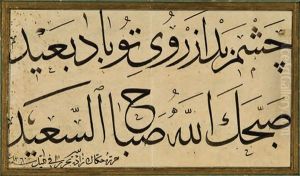 چشم بد از روی تو باد بعید
صبحك الله صباح السعيد